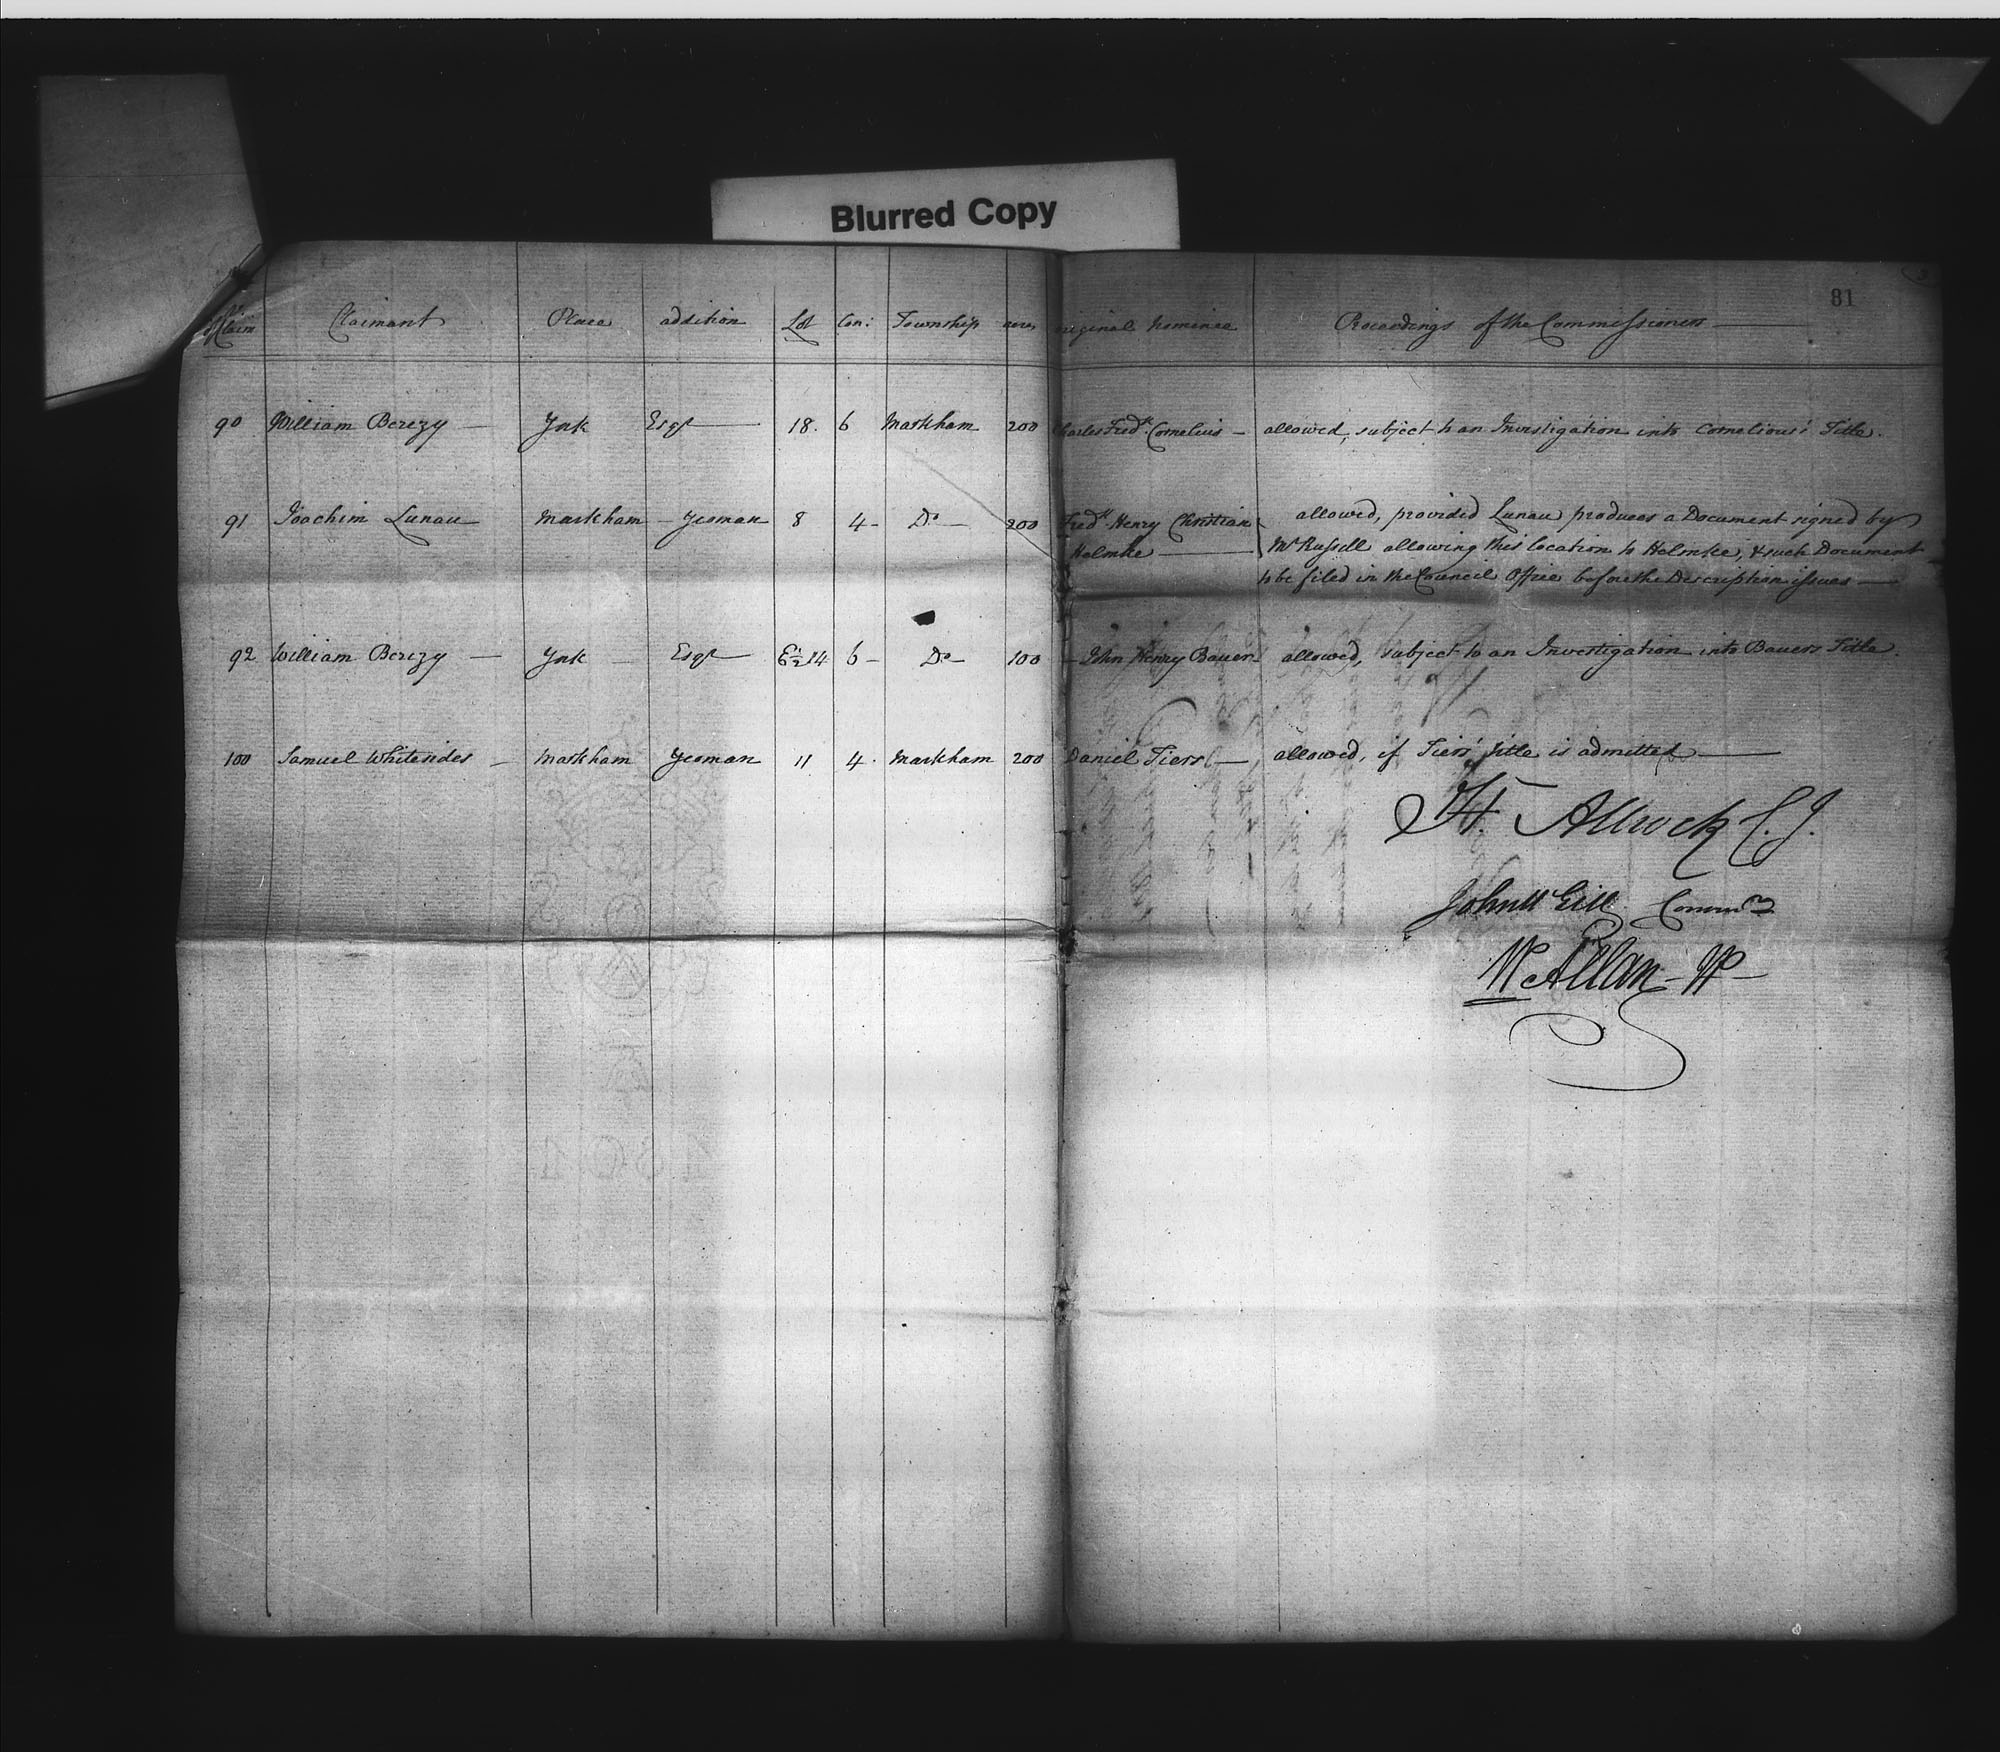 Blurred Copy
81
of Claim Claimant Place addition Lot Con: Township acres original nominee Proceedings of the Commissioners
90 William Berczy — York Esqr — 18. 6 Markham 200 Charles Fredk. Cornelius — allowed, subject to an Investigation into Cornelious' Title.
91 Joachim Lunau Markham — Yeoman 8 4 — Do — 200 Fredk Henry Christian allowed, provided Lunau produces a Document signed by
Helmke — Mr Russell allowing this location to Helmke, & such Document
to be filed in the Council Office before the Description issues —
92 William Berczy — York — Esqr — E½ 14 6 — Do — 100 — John Henry Bauer — allowed, subject to an Investigation into Bauers Title.
100 Samuel Whitesides — Markham Yeoman 11 4. Markham 200 Daniel Tiers — allowed, if Tiers' Title is admitted —
H. Allcock C.J.
John McGill Commr
W Allan — JP
1801